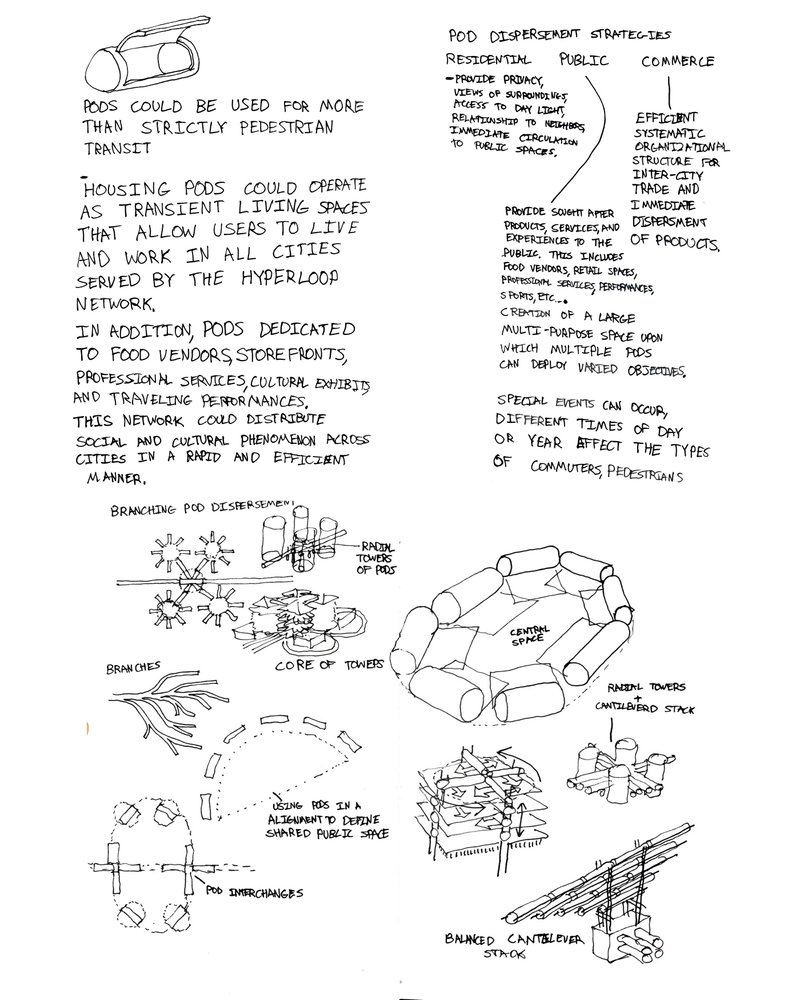 PODS COULD BE USED FOR MORE
THAN STRICTLY PEDESTRIAN
TRANSIT
-
HOUSING PODS COULD OPERATE
AS TRANSIENT LIVING SPACES
THAT ALLOW USERS TO LIVE
AND WORK IN ALL CITIES
SERVED BY THE HYPERLOOP
NETWORK.
IN ADDITION, PODS DEDICATED
TO FOOD VENDORS, STOREFRONTS,
PROFESSIONAL SERVICES, CULTURAL EXHIBITS
AND TRAVELING PERFORMANCES.
THIS NETWORK COULD DISTRIBUTE
SOCIAL AND CULTURAL PHENOMENON ACROSS
CITIES IN A RAPID AND EFFICIENT
MANNER.
POD DISPERSEMENT STRATEGIES
RESIDENTIAL PUBLIC COMMERCE
-PROVIDE PRIVACY,
VIEWS OF SURROUNDINGS,
ACCESS TO DAY LIGHT,
RELATIONSHIP TO NEIGHBORS,
IMMEDIATE CIRCULATION
TO PUBLIC SPACES.
EFFICIENT
SYSTEMATIC
ORGANIZATIONAL
STRUCTURE FOR
INTER-CITY
TRADE AND
IMMEDIATE
DISPERSMENT
OF PRODUCTS.
PROVIDE SOUGHT AFTER
PRODUCTS, SERVICES, AND
EXPERIENCES TO THE
PUBLIC. THIS INCLUDES
FOOD VENDORS, RETAIL SPACES,
PROFESSIONAL SERVICES, PERFORMANCES,
SPORTS, ETC...
CREATION OF A LARGE
MULTI-PURPOSE SPACE UPON
WHICH MULTIPLE PODS
CAN DEPLOY VARIED OBJECTIVES.
SPECIAL EVENTS CAN OCCUR,
DIFFERENT TIMES OF DAY
OR YEAR AFFECT THE TYPES
OF COMMUTERS, PEDESTRIANS
BRANCHING POD DISPERSEMENT
RADIAL
TOWERS
OF PODS
CORE OF TOWERS
BRANCHES
USING PODS IN A
ALIGNMENT TO DEFINE
SHARED PUBLIC SPACE
POD INTERCHANGES
CENTRAL
SPACE
RADIAL TOWERS
+
CANTILEVERD STACK
BALANCED CANTILEVER
STACK